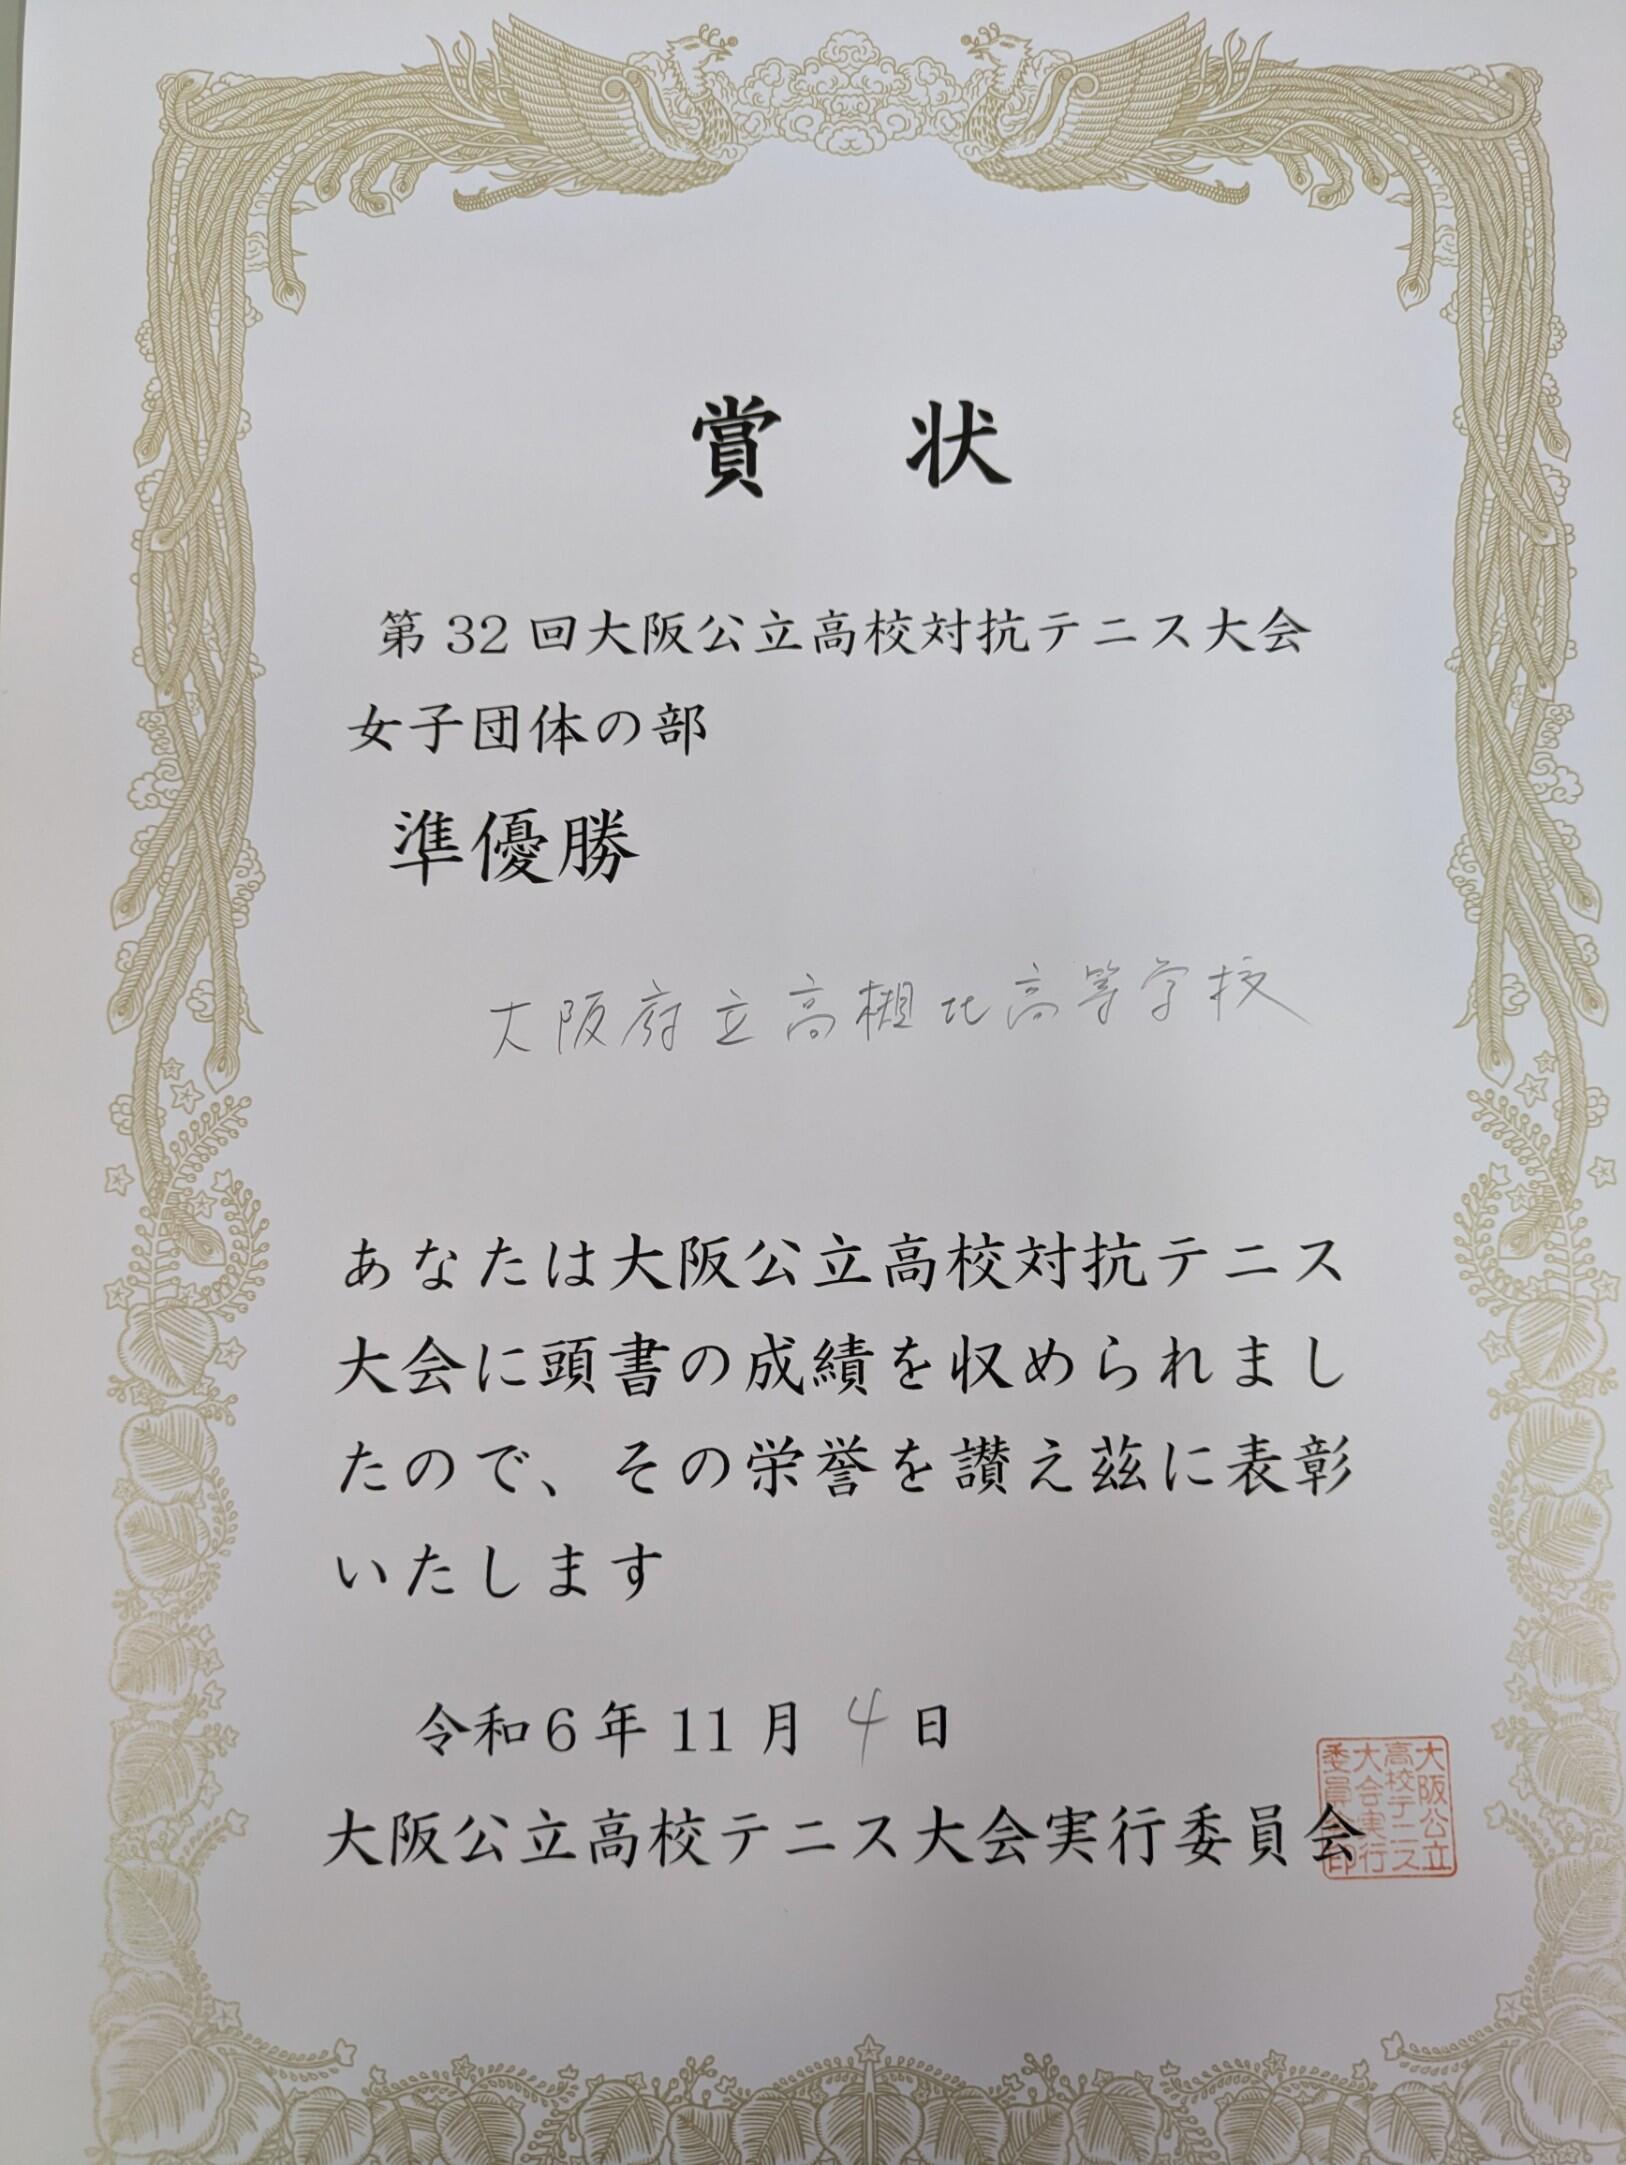 賞 状
第32回大阪公立高校対抗テニス大会
女子団体の部
準優勝
大阪府立高槻北高等学校
あなたは大阪公立高校対抗テニス
大会に頭書の成績を収められまし
たので、その栄誉を讃え茲に表彰
いたします
令和6年11月4日
大阪公立高校テニス大会実行委員会
大阪公立
高校テニス
大会実行
委員会印